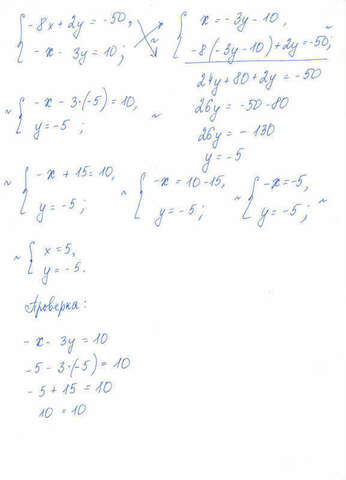 { -8x + 2y = -50,
{ -x - 3y = 10;
~ { x = -3y - 10,
{ -8(-3y-10) + 2y = -50; ~
24y + 80 + 2y = -50
26y = -50 - 80
26y = -130
y = -5
~ { -x - 3·(-5) = 10,
{ y = -5 ; ~
~ { -x + 15 = 10,
{ y = -5 ;
~ { -x = 10 - 15,
{ y = -5 ;
~ { -x = -5,
{ y = -5 ; ~
~ { x = 5,
{ y = -5.
Проверка:
-x - 3y = 10
-5 - 3·(-5) = 10
-5 + 15 = 10
10 = 10